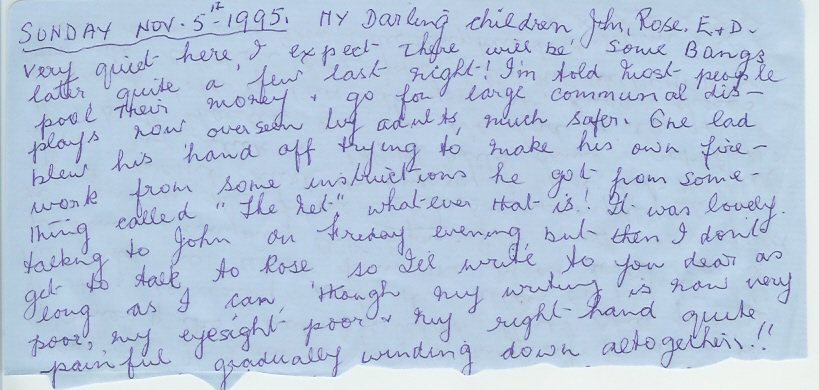 SUNDAY NOV. 5th 1995. MY Darling children John, Rose. E+D.
Very quiet here, I expect there will be some Bangs
later quite a few last night! I'm told most people
pool their money + go for large communal dis-
plays now overseen by adults, much safer. One lad
blew his hand off trying to make his own fire-
work from some instructions he got from some-
thing called "The Net" whatever that is! It was lovely
talking to John on Friday evening, but then I don't
get to talk to Rose so I'll write to you dear as
long as I can, though my writing is now very
poor, my eyesight poor + my right hand quite
painful gradually winding down altogether!!